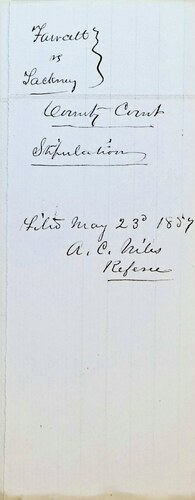 Fawcett
vs
Lackney
County Court
Stipulation
Filed May 23d 1857
A. C. Niles
Referee